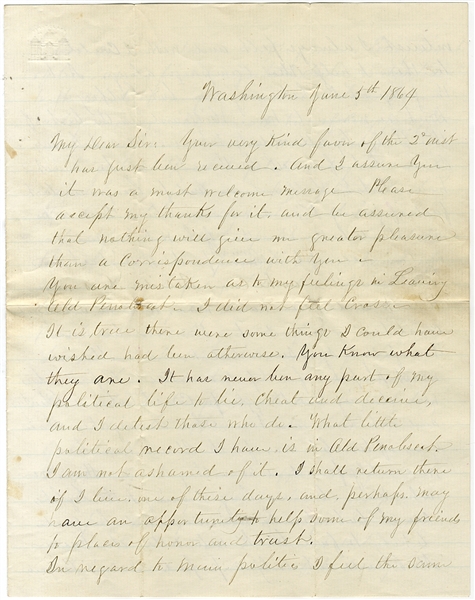 Washington June 5th 1864
My Dear Sir: Your very kind favor of the 2d inst
has just been received. And I assure you
it was a most welcome message Please
accept my thanks for it. and be assured
that nothing will give me greater pleasure
than a Correspondence with You.
You are mistaken as to my feelings in Leaving
Old Penobscot. I did not feel Cross.
It is true there were some things I could have
wished had been otherwise. You Know what
they are. It has never been any part of my
political life to lie, Cheat and deceive,
and I detest those who do. What little
political record I have is in Old Penobscot.
I am not ashamed of it. I shall return there
if I live, one of these days, and, perhaps may
have an opportunity help some of my friends
to places of honor and trust.
In regard to politics I feel the same